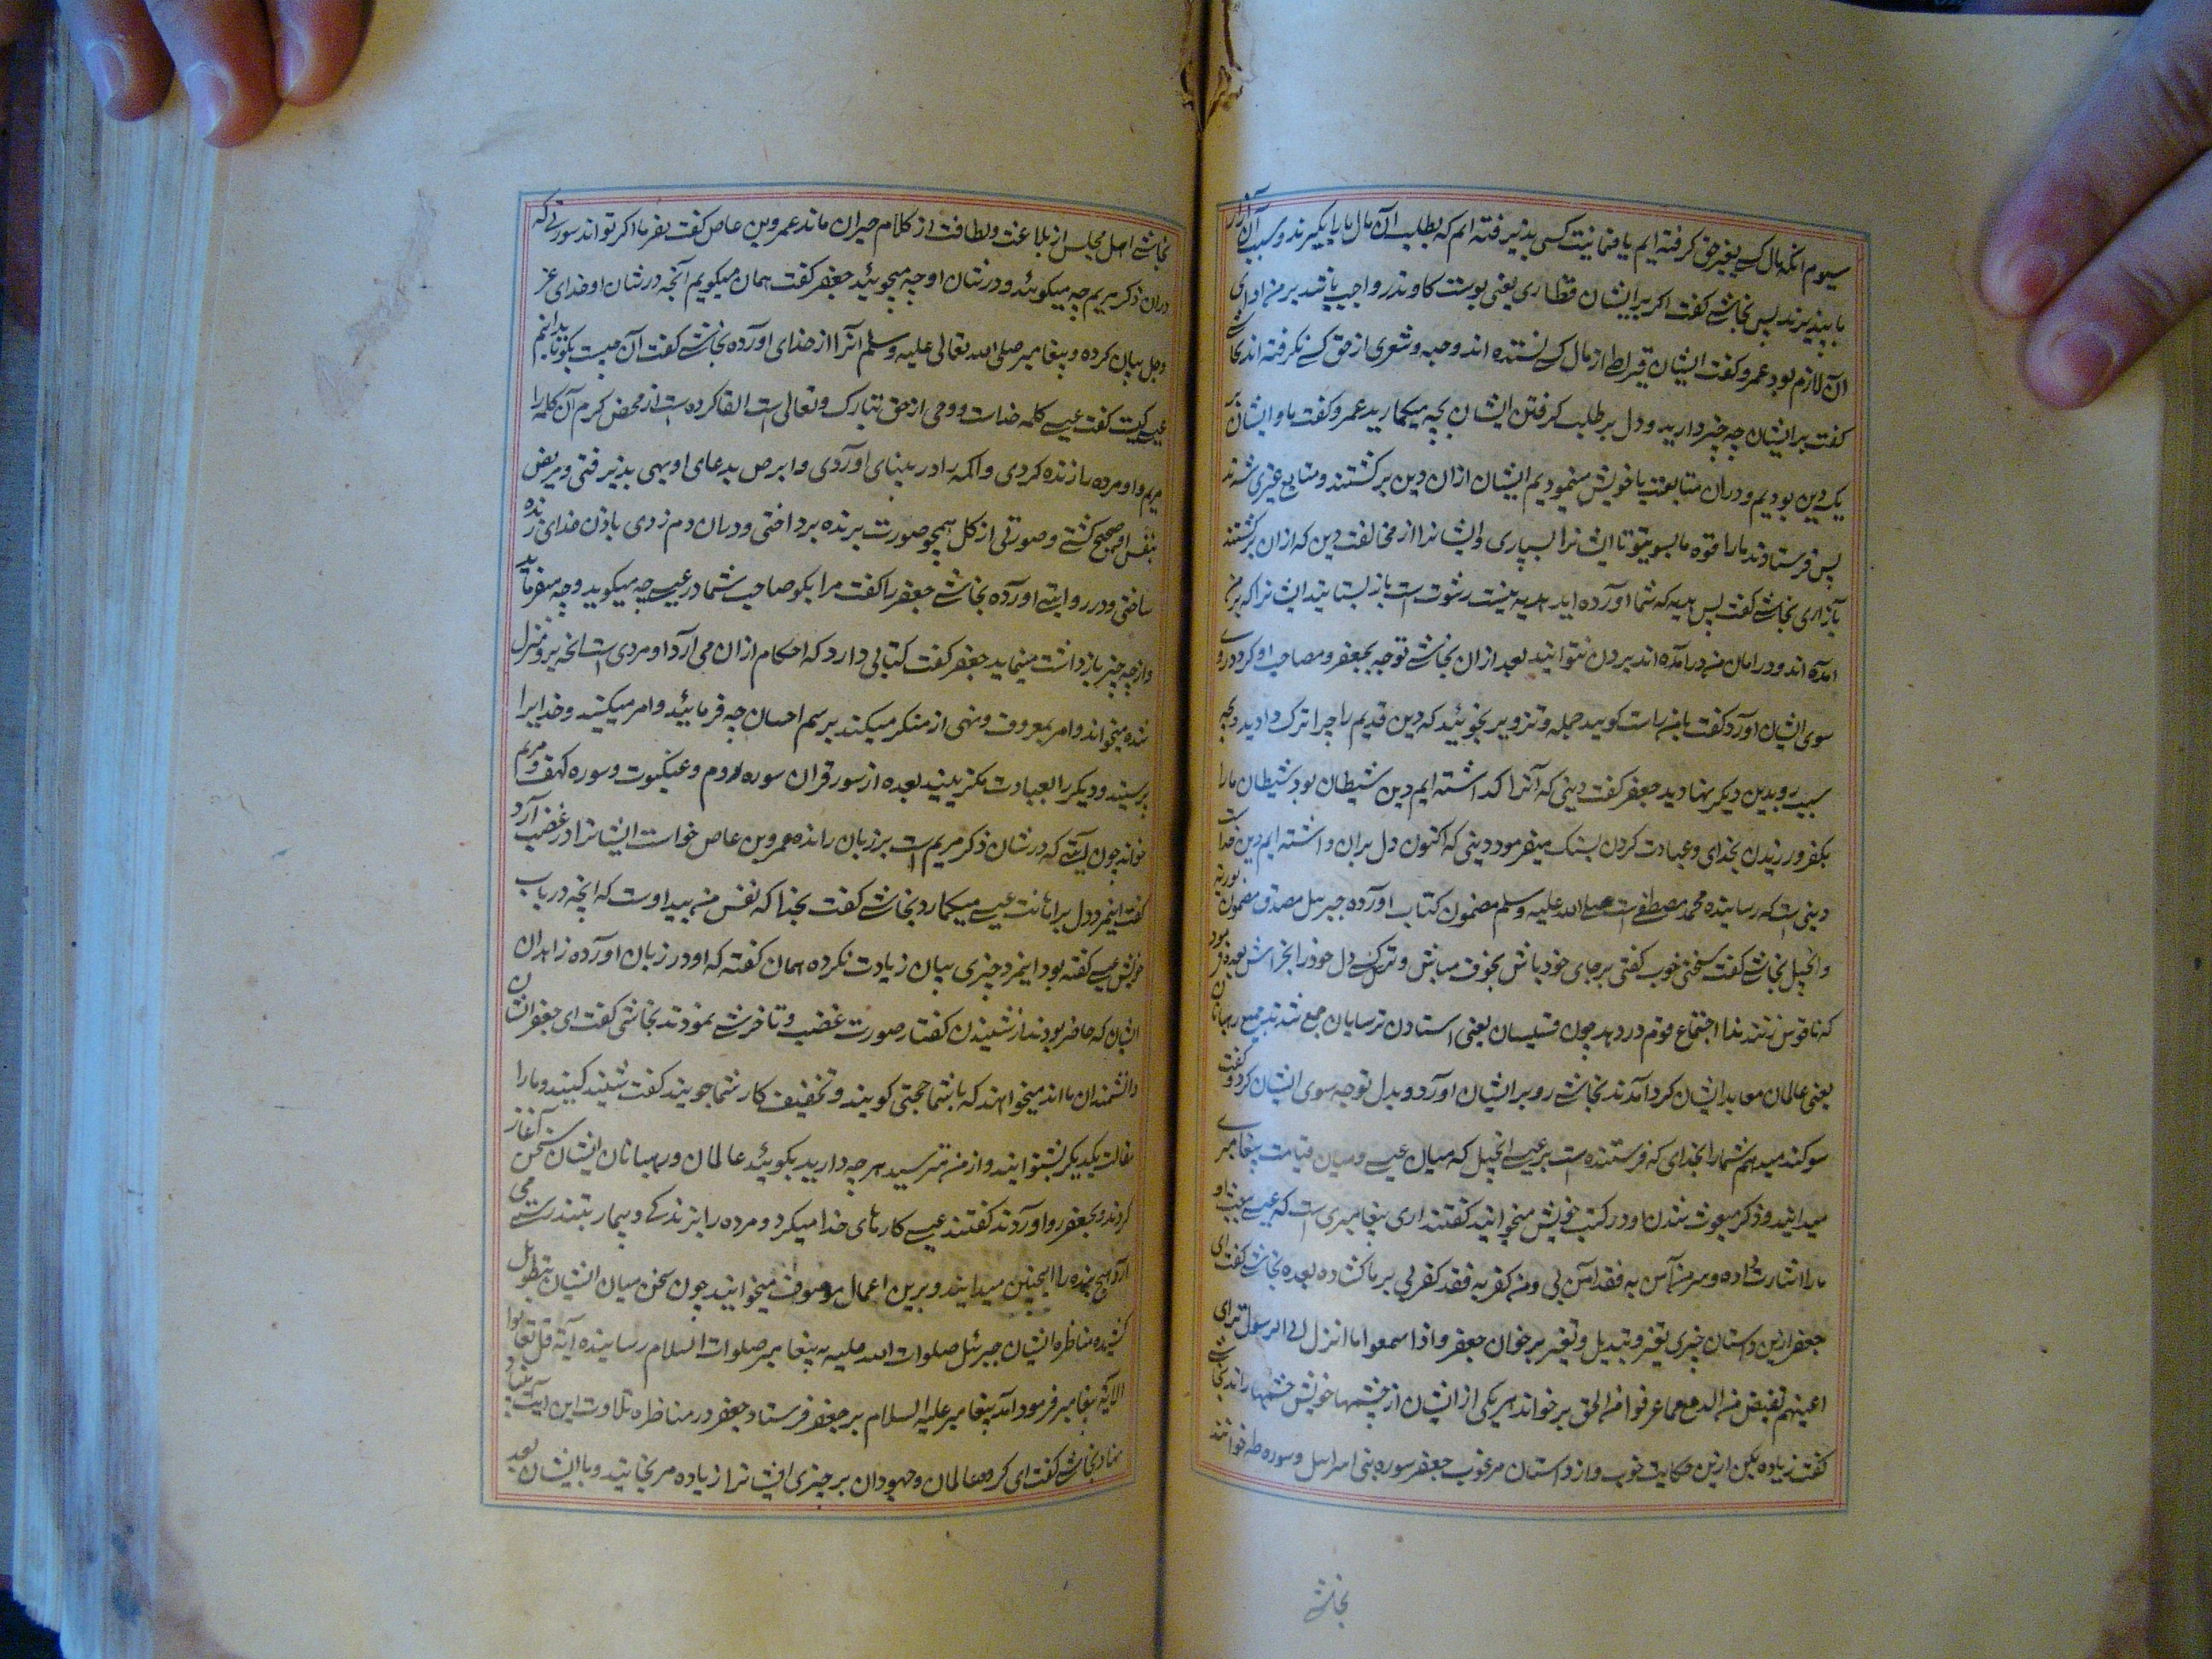 سیوم آنکه مال کسے بغیر حق گرفته ایم یا ضمانیت کسی پذیرفته ایم که بطلب آن مال ما را بگیرند و بسبب آن آزار
ما بپذیرند پس نجاشے گفت اگر بر ایشان قنطاری یعنی پوست گاو پر زر واجب باشد بر من ادای
آن لازم بود عمرو گفت ایشان قیراط از مال کسے نستده اند و حبه و شعوری از حق کسے نگرفته اند نجاشے
گفت بر ایشان چه چیز دارید و دل بر طلب گرفتن ایشان بچه میگمارید عمرو گفت ما و ایشان بر
یک دین بودیم و دران متابعت با خویش مینمودیم ایشان ازان دین برگشتند و متابع غیری شدند
پس فرستادند ما را قوم ما بسوی تو تا ایشانرا بسپاری و ایشانرا از مخالفت دین که ازان برگشتند
باز اری نجاشے گفت پس هدیه که شما آورده اید هدیه نیست رشوت است باز بستانید ایشانرا که بر من
آمده اند و در امان من درآمده اند بردن نتوانید بعد ازان نجاشے توجه بجعفر و مصاحب او کرد و روے
سوی ایشان آورد گفت با من راست گویید حیله و تزویر بجوئید که دین قدیم را چرا ترک دادید و بچه
سبب رو بدین دیگر نهادید جعفر گفت دینی که آنرا گذاشته ایم دین شیطان بود شیطان ما را
بکفر ورزیدن بخدای و عبادت کردن بسنگ میفرمود دینی که اکنون دل بران داشته ایم دین خداست
دینی است که رساینده محمد مصطفے است صلے الله علیه وسلم مضمون کتاب آورده جبرئیل مصدق مضمون توریة
و انجیل نجاشے گفت سخنی خوب گفتی بر جای خود باش بخوف مباش و ترسکے دل خود را بخراش بعده فرمود
که ناقوس زنند ندا اجتماع قوم در دهد چون قسیسان یعنی استادن ترسایان جمع شدند جمیع رهبانان
یعنی عالمان معابد ایشان گرد آمدند نجاشے رو بر ایشان آورد و بدل توجه سوی ایشان کرد و گفت
سوگند میدهم شما را بخدای که فرستنده است بر عیسے انجیل که میان عیسے و میان قیامت پیغامبرے
میدانید و ذکر مبعوث شدن او در کتب خویش میخوانید گفتند اری پیغامبری است که عیسے بیشتاو
ما را اشارت داده و سر من آمن به فقد آمن بی و من کفر به فقد کفر بی بر ما کشاده بعده نجاشے گفت ای
جعفر ازین داستان چیزی بغیر و تبدیل و تغیر بر خوان جعفر و اذا سمعوا ما انزل الی الرسول تری
اعینهم تفیض من الدمع مما عرفوا من الحق بر خواند هر یکی از ایشان از چشمها خویش چشمها راند نجاشے
گفت زیاده بکن ازین حکایت خوب و از داستان مرغوب جعفر سوره بنی اسرائیل و سوره طه خواندند
نجاشے
نجاشے اهل مجلس از بلاغت و لطافت از کلام حیران ماند عمرو بن عاص گفت بفرما اگر تواند سورتی که
دران ذکر مریم چه میگوئد و در شان او چه میجوئید جعفر گفت همان میگویم آنچه در شان او خدای عز
و جل بیان کرده و پیغامبر صلی الله تعالی علیه وسلم آنرا از خدای آورده نجاشے گفت آن چیست بگو تا بدانیم
عیسے کیست گفت عیسے کلمه خداست و وحی از حق تبارک و تعالی است القا کرده است از محض کرم آن کلمه را
مریم و او مرده را زنده کردی و اکمه را در بینای آوردی و ابرص بدعای او بهی پذیرفتی و مریض
بنفس او صحیح گشتے و صورتی از گل همچو صورت پرنده پرداختی و دران دم زدی باذن خدای زنده
ساختی و در روایتے آورده نجاشے جعفر را گفت مرا بگو صاحب شما در عیسے چه میگوید و چه میفرماید
و از چه چیز باز داشت مینماید جعفر گفت کتابی دارد که احکام ازان می آرد او مردی است انچه برو منزل
شده میخواند و امر بمعروف و نهی از منکر میکند بر سم احسان چه فرمائید و امر میکنید و خدایرا
پرستید و دیگر را بعبادت مگزینید بعده از سور قران سوره روم و عنکبوت و سوره کهف و مریم
خوانه چون آیتے که در شان ذکر مریم است بر زبان رانده عمرو بن عاص خواست ایشانرا در غضب آرد
گفت اینمرد دل بر اهانت عیسے میگمارد نجاشے گفت بخدا که نفس من بید اوست که انچه در باب
خویش عیسے گفته بود اینمرد چیزی بیان زیادت نکرده همان گفته که او در زبان آورده زاهدان
ایشان که حاضر بودند از شنیدن گفتار صورت غضب و تاخرشے نمودند نجاشی گفت ای جعفر ایشان
دانشمندان ما اند میخواهند که با شما حجتی گویند و تخفیف کار شما جویند گفت شنید کنیند و ما را
مقالت یکدیگر بشنوانید و از من مترسید هر چه دارید بگوئید عالمان و رهبانان ایشان سخن آغاز
کردند و بجعفر رو آوردند گفتند عیسے کارهای خدا میکرد و مرده را بزندگے و بیمار بتندرستے می
آرد هیچ بنده را اینچنین میدانند و برین اعمال موصوف میخوانید چون سخن میان ایشان بتطویل
کشیده مناظره ایشان جبرئیل صلوات الله علیه به پیغامبر صلوات السلام رسانیده آیة قل تعالوا
الآیة پیغامبر فرمود آمد پیغامبر علیه السلام بر جعفر فرستاد جعفر در مناظره تلاوت این آیت بنیاد
نهاد نجاشے گفت ای گروه عالمان و جهودان بر چیزی ایشانرا زیاده مرنجانید و با ایشان بعد